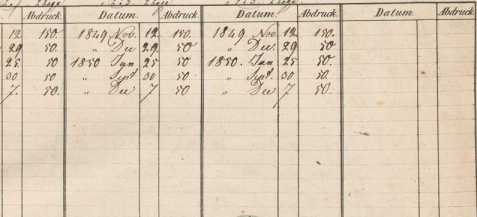 Abdruck. Datum. Abdruck. Datum. Abdruck. Datum. Abdruck.
12 150. 1849 Nov. 12 150. 1849 Nov. 12 150.
29 50 " Dec 29 50 " Dec. 29 50
25 50 1850 Jan 25 50 1850. Jan 25 50
30 50 " Sept 30 50. " Sept. 30 50.
7. 50. " Dec 7 50. " Dec 7 50.